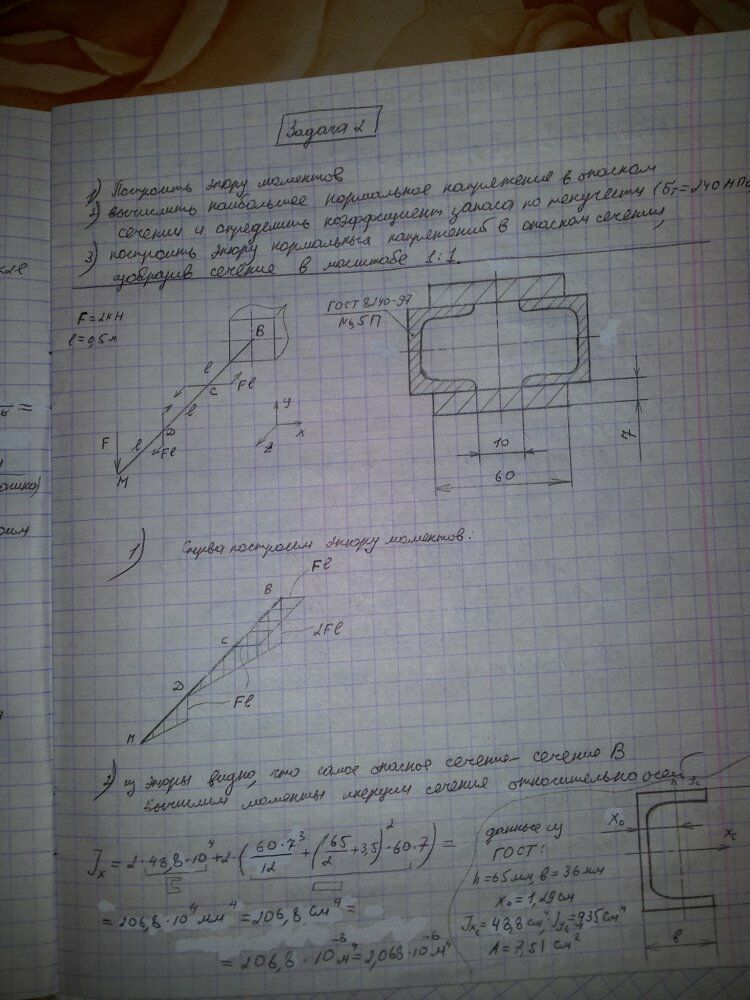 Задача 2
1) Построить эпюру моментов
2) вычислить наибольшее нормальное напряжение в опасном
сечении и определить коэффициент запаса по текучести (σт=240 МПа
3) построить эпюру нормальных напряжений в опасном сечении,
изобразив сечение в масштабе 1:1.
F=2кН
l=0,5м
B
l
C
Fl
l
D
Fl
F
l
M
y
x
z
ГОСТ 8240-97
№6,5П
10
60
7
1) Сперва построим эпюру моментов:
Fl
B
2Fl
C
D
Fl
M
2) из эпюры видно, что самое опасное сечение - сечение B
Вычислим моменты инерции сечения относительно осей
Jx = 2·48,8·10⁴+2·(60·7³/12+(65/2+3,5)²·60·7) =
= 206,8·10⁴ мм⁴ = 206,8 см⁴ =
= 206,8·10⁻⁸ м⁴ = 2,068·10⁻⁶ м⁴
данные из
ГОСТ:
h=65мм, b=36мм
x₀=1,29см
Jxc=48,8 см⁴, Jyc=9,35см⁴
A=7,51 см²
yc
x₀
xc
b